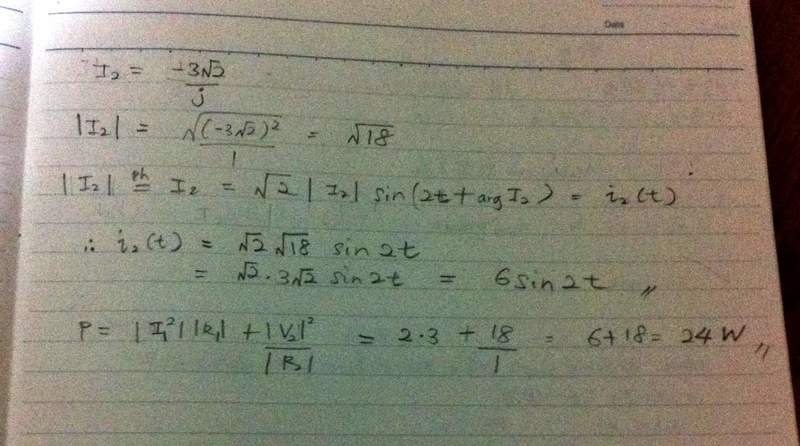 Date
I₂ = -3√2 / j
|I₂| = √(-3√2)² / 1 = √18
|I₂| ≝ph I₂ = √2 |I₂| sin(2t + arg I₂) = i₂(t)
∴ i₂(t) = √2 √18 sin 2t
= √2 · 3√2 sin 2t = 6 sin 2t 〃
P = |I₁²| |R₁| + |V₂|² / |R₂| = 2·3 + 18 / 1 = 6 + 18 = 24 W 〃